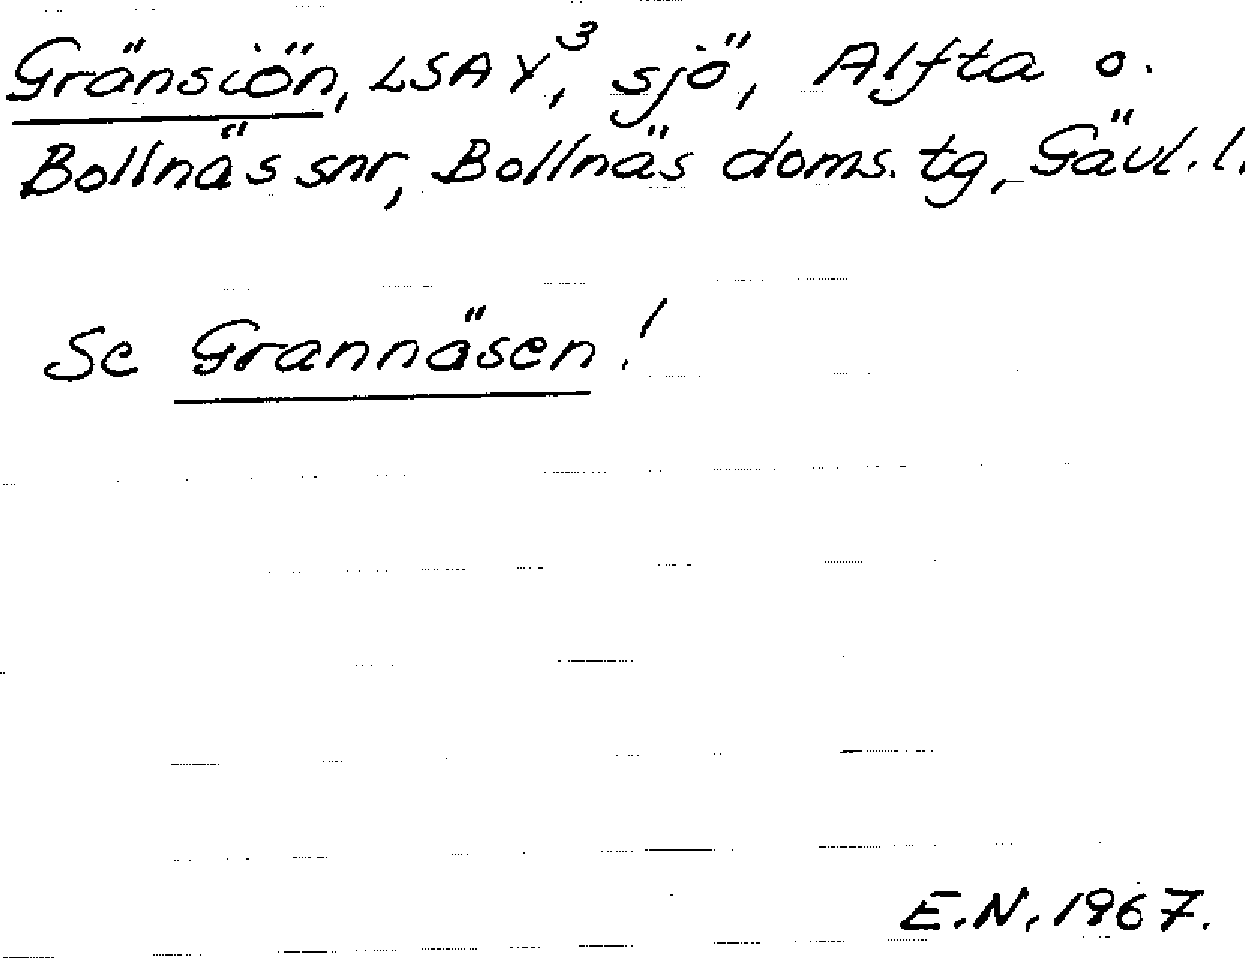 Gränsiön, LSA Y³, sjö, Alfta o.
Bollnäs snr, Bollnäs doms. tg, Gävl. l.
Se Grannäsen!
E.N. 1967.